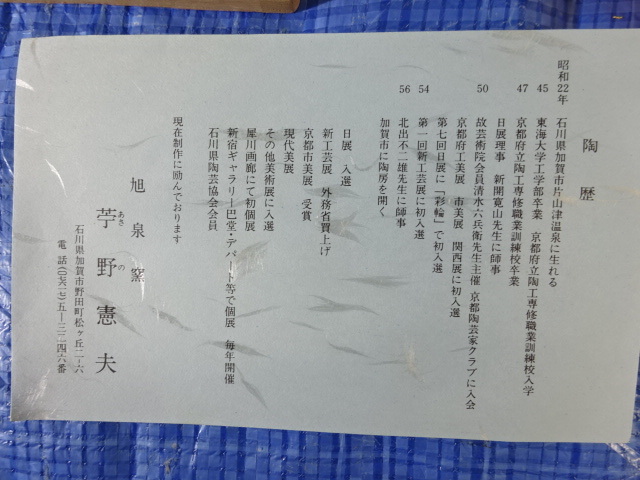 陶歴
昭和22年 石川県加賀市片山津温泉に生れる
45 東海大学工学部卒業 京都府立陶工専修職業訓練校入学
47 京都府立陶工専修職業訓練校卒業
日展理事 新開寛山先生に師事
50 故芸術院会員清水六兵衛先生主催 京都陶芸家クラブに入会
京都府工美展 市美展 関西展に初入選
第七回日展に「彩輪」で初入選
54 第一回新工芸展に初入選
56 北出不二雄先生に師事
加賀市に陶房を開く
日展 入選
新工芸展 外務省買上げ
京都市美展 受賞
現代美展
その他美術展に入選
犀川画廊にて初個展
新宿ギャラリー巴堂・デパート等で個展 毎年開催
石川県陶芸協会会員
現在制作に励んでおります
旭泉窯
苧野憲夫
あさ の
石川県加賀市野田町松ヶ丘二-六
電話(〇七六一七)五-三二四六番